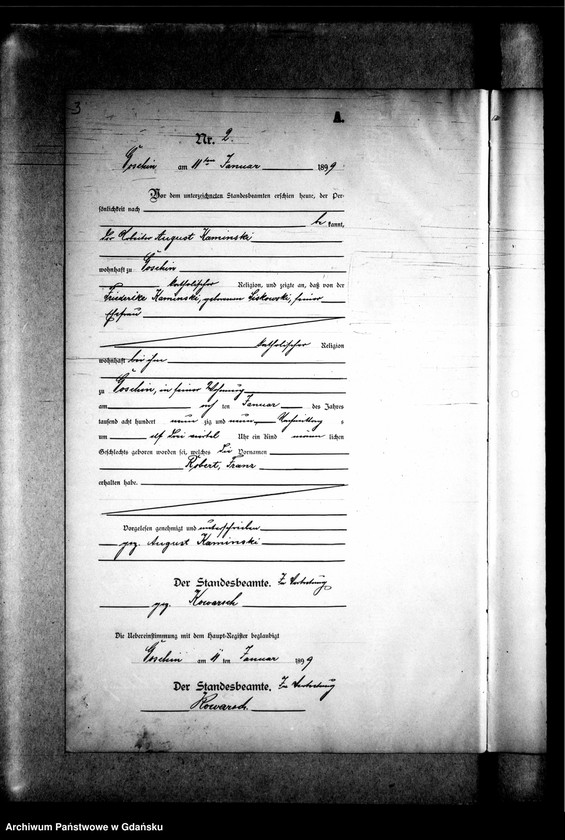 3
A.
Nr. 2.
Göschin am 11ten Januar 1899
Vor dem unterzeichneten Standesbeamten erschien heute, der Per-
sönlichkeit nach
be kannt,
der Arbeiter August Kaminski
wohnhaft zu Göschin
katholischer Religion, und zeigte an, daß von der
Friederike Kaminski, geborenen Liskowski, seiner
Ehefrau
katholischer Religion
wohnhaft bei ihm
zu Göschin, in seiner Wohnung
am ten Januar des Jahres
tausend acht hundert neun zig und neun, Vormittag s
um elf drei viertel Uhr ein Kind männ lichen
Geschlechts geboren worden sei, welches die Vornamen
Robert, Franz
erhalten habe.
Vorgelesen genehmigt und unterschrieben
gez. August Kaminski
Der Standesbeamte. In Vertretung
gez. Kowarsch
Die Uebereinstimmung mit dem Haupt-Register beglaubigt
Göschin am 11 ten Januar 1899
Der Standesbeamte. In Vertretung
Kowarsch.
Archiwum Państwowe w Gdańsku